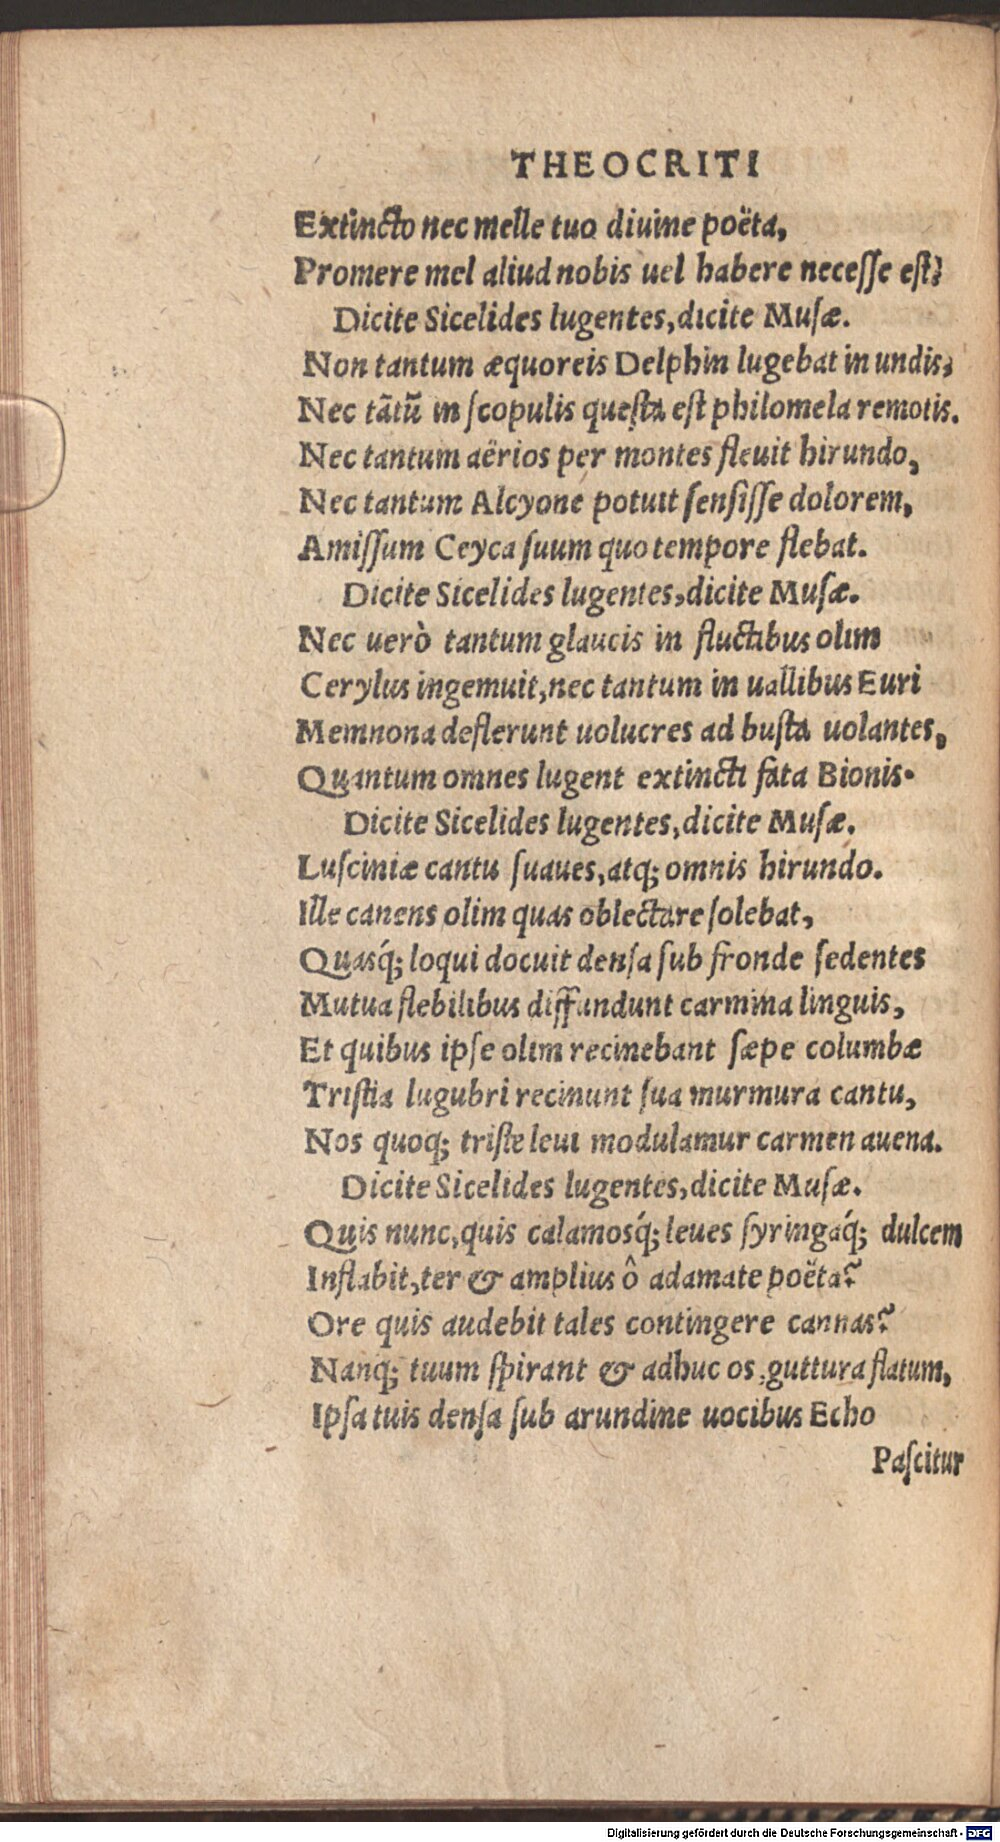 THEOCRITI
Extincto nec melle tuo diuine poëta,
Promere mel aliud nobis uel habere necesse est?
Dicite Sicelides lugentes, dicite Musæ.
Non tantum æquoreis Delphin lugebat in undis,
Nec tãtũ in scopulis questa est philomela remotis.
Nec tantum aërios per montes fleuit hirundo,
Nec tantum Alcyone potuit sensisse dolorem,
Amissum Ceyca suum quo tempore flebat.
Dicite Sicelides lugentes, dicite Musæ.
Nec uerò tantum glaucis in fluctibus olim
Cerylus ingemuit, nec tantum in uallibus Euri
Memnona deflerunt uolucres ad busta uolantes,
Quantum omnes lugent extincti fata Bionis.
Dicite Sicelides lugentes, dicite Musæ.
Lusciniæ cantu suaues, atq; omnis hirundo.
Ille canens olim quas oblectare solebat,
Quasq́; loqui docuit densa sub fronde sedentes
Mutua flebilibus diffundunt carmina linguis,
Et quibus ipse olim recinebant sæpe columbæ
Tristia lugubri recinunt sua murmura cantu,
Nos quoq; triste leui modulamur carmen auena.
Dicite Sicelides lugentes, dicite Musæ.
Quis nunc, quis calamosq́; leues syringaq́; dulcem
Inflabit, ter & amplius ô adamate poëta?
Ore quis audebit tales contingere cannas?
Nanq; tuum spirant & adhuc os, guttura flatum,
Ipsa tuis densa sub arundine uocibus Echo
Pascitur
Digitalisierung gefördert durch die Deutsche Forschungsgemeinschaft - DFG